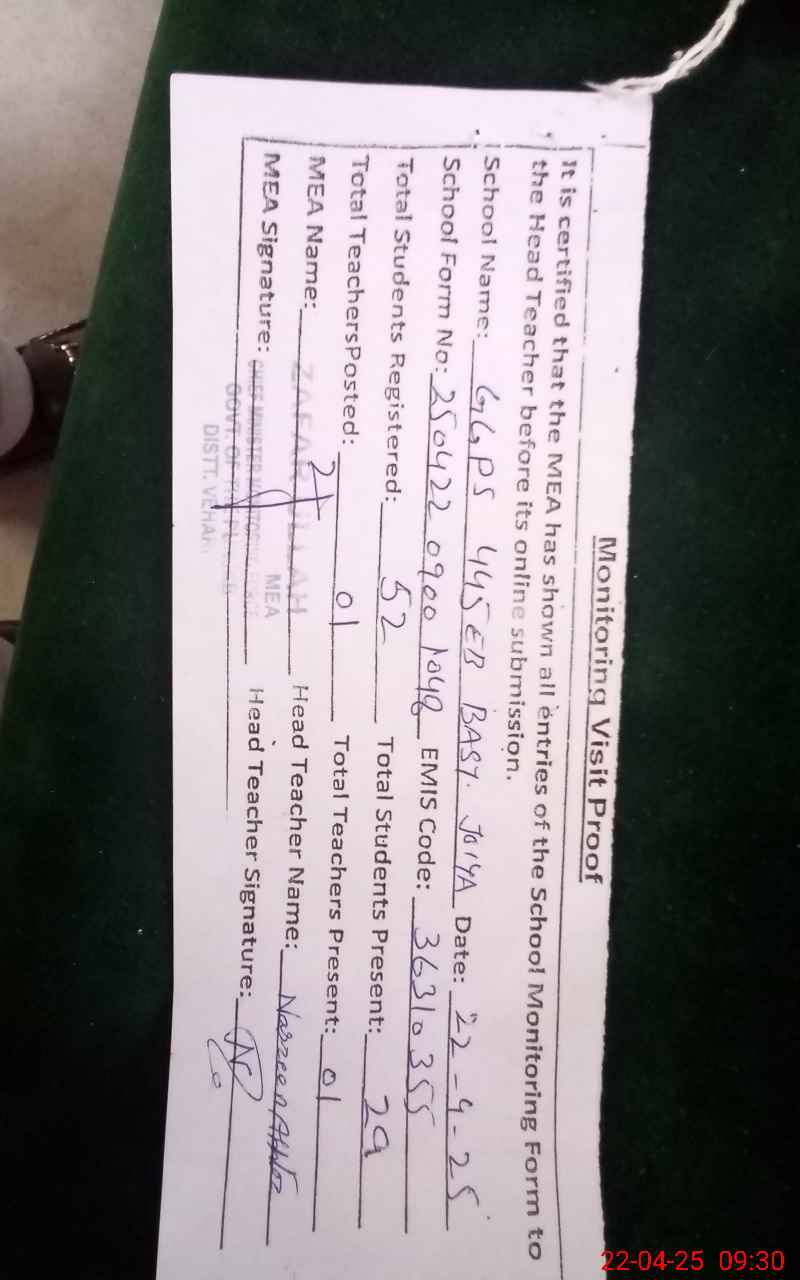 Monitoring Visit Proof
It is certified that the MEA has shown all entries of the School Monitoring Form to
the Head Teacher before its online submission.
School Name: GGPS 445 EB BASTI JOIYA Date: 22-4-25
School Form No: 250422 0900 1048 EMIS Code: 36310355
Total Students Registered: 52 Total Students Present: 29
Total TeachersPosted: 01 Total Teachers Present: 01
MEA Name: ZAFAR ULLAH Head Teacher Name: Nasreen
MEA
MEA Signature: Head Teacher Signature:
CHIEF MINISTER MONITORING FORCE
GOVT. OF
DISTT. VEHARI
22-04-25 09:30